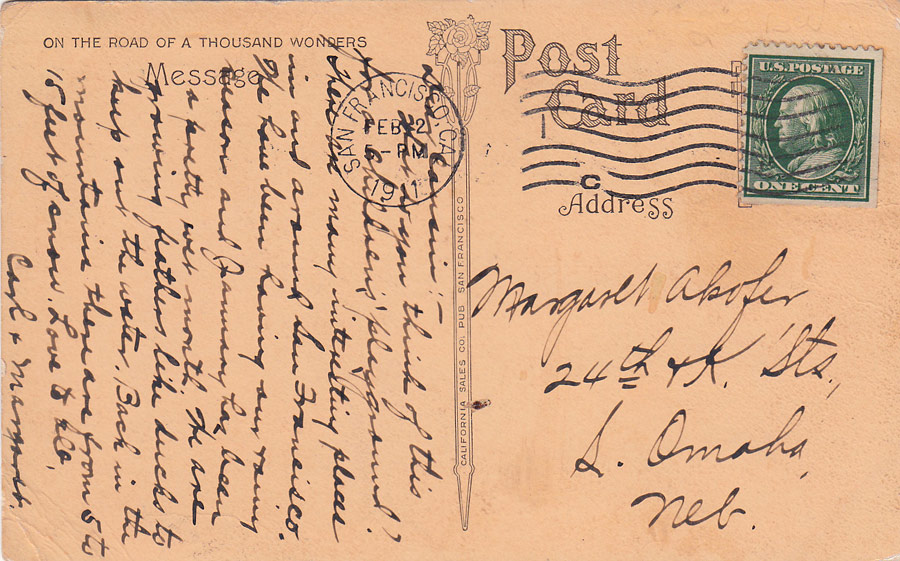 ON THE ROAD OF A THOUSAND WONDERS
Message
Dear Cousin:-
What do you think of this
for a childrens' playground?
There are many interesting places
in and around San Francisco.
We have been having our rainy
season and January has been
a pretty wet month. We are
growing feathers like ducks to
keep out the water. Back in the
mountains there are from 5 to
15 feet of snow. Love to all.
Carl & Margaret.
SAN FRANCISCO, CAL.
FEB 2
5-PM
1911
CALIFORNIA SALES CO. PUB SAN FRANCISCO
Post
Card
C
Address
U.S. POSTAGE
ONE CENT
Margaret Akofer
24th & K. Sts.,
S. Omaha,
Neb.